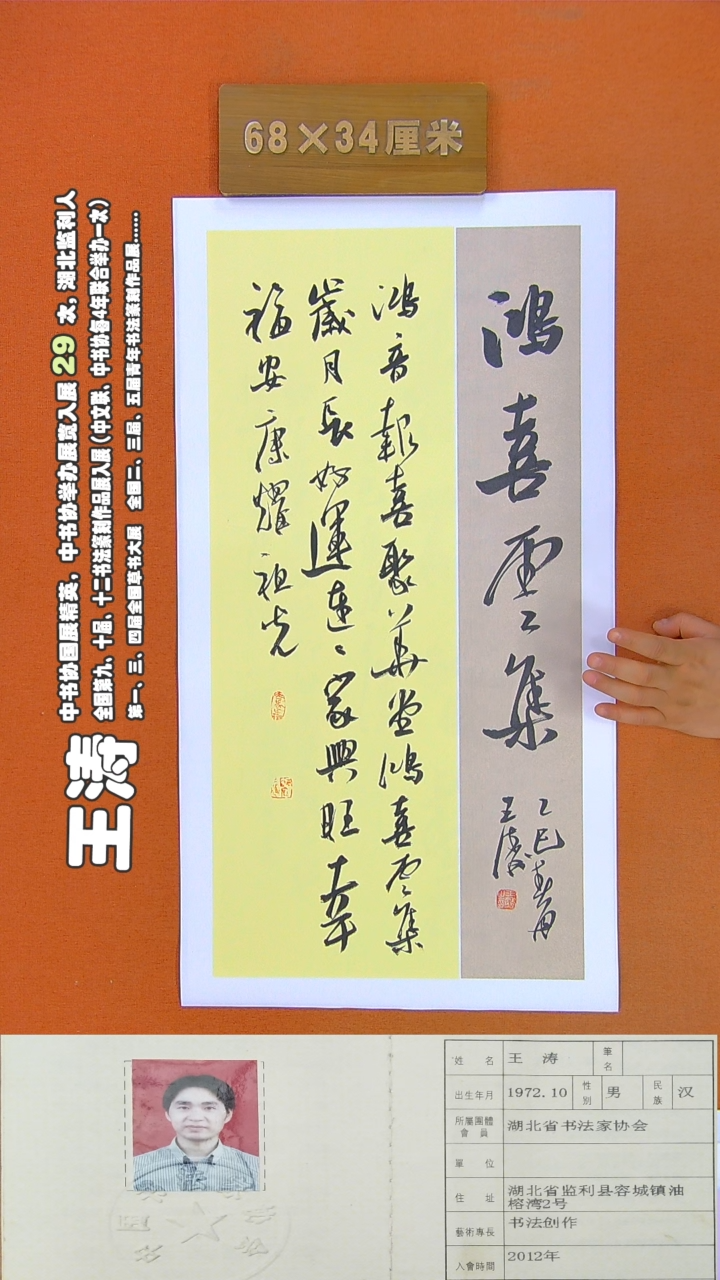 68×34厘米
王涛
中书协国展精英，中书协举办展赛入展 29 次，湖北监利人
全国第九、十届、十二书法篆刻作品展入展（中文联、中书协每4年联合举办一次）
第一、三、四届全国草书大展 全国二、三届、五届青年书法篆刻作品展......
鴻喜雲集
乙巳春月
王涛
鴻音報喜聚華堂鴻喜雲集
歲月長好運連連家興旺幸
福安康耀祖光
姓名 王 涛 筆名
出生年月 1972.10 性別 男 民族 汉
所屬團體會員 湖北省书法家协会
單位
住址 湖北省监利县容城镇油榕湾2号
藝術專長 书法创作
入會時間 2012年